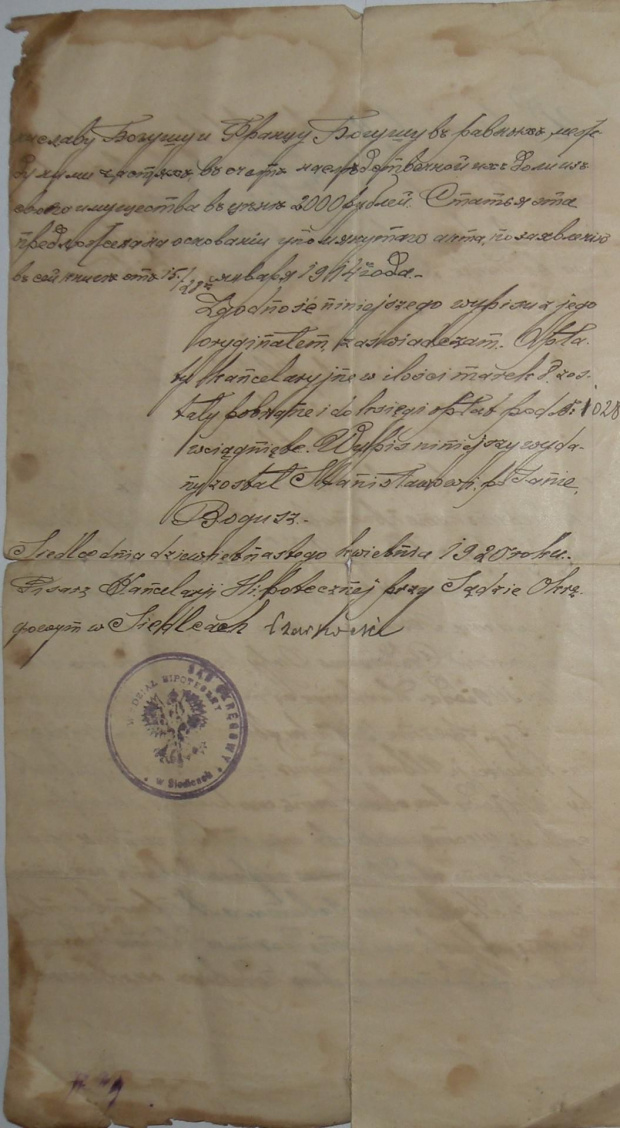 ниславу Богушу и Францу Богушу въ равныхъ меж-
ду ними частяхъ въ счетъ наслѣдственной ихъ доли изъ
своего имущества въ цѣнѣ 2000 рублей. Статья эта
предложена на основаніи упомянутаго акта, по заявленію
въ сей книгѣ отъ 15/28 января 1914 года.-
Zgodność niniejszego wypisu z jego
oryginałem, zaświadczam. Opła-
ty kancelaryjne w ilości marek 8. zos-
tały pobrane i do księgi opłat pod № 1028
wciągnięte. Wypis niniejszy wyda-
ny został Stanisławowi, s. Jana,
Bogusz.-
Siedlce dnia dziewiętnastego kwietnia 1920 roku.
Pisarz Kancelarji Hipotecznej przy Sądzie Okrę-
gowym w Siedlcach
SĄD OKRĘGOWY
WYDZIAŁ HIPOTECZNY
w Siedlcach